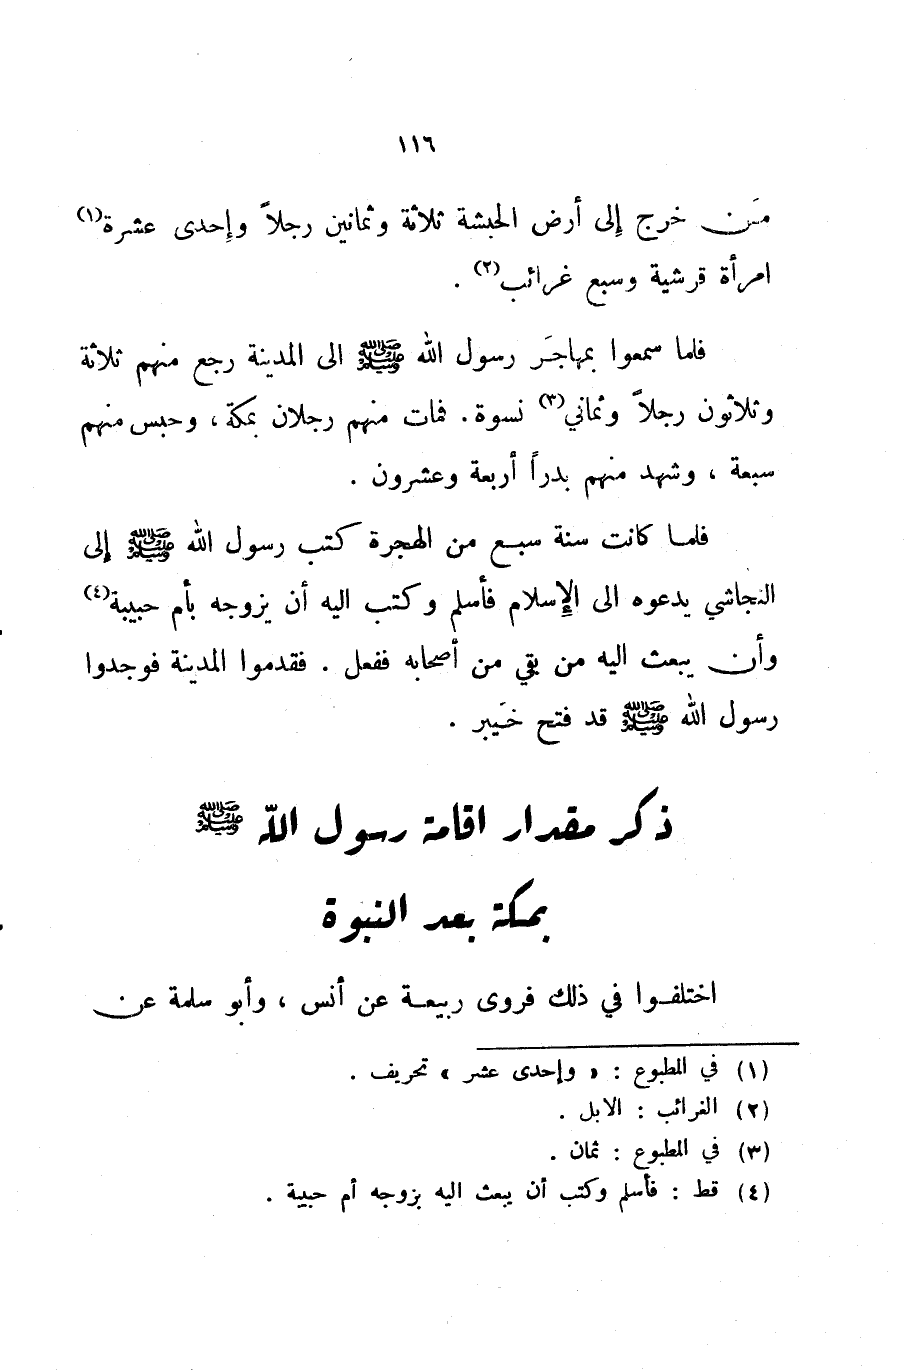 ١١٦
مَن خرج إلى أرض الحبشة ثلاثة وثمانين رجلاً وإحدى عشرة(١)
امرأة قرشية وسبع غرائب(٢) .
فلما سمعوا بمهاجَر رسول الله ﷺ الى المدينة رجع منهم ثلاثة
وثلاثون رجلاً وثماني(٣) نسوة. فمات منهم رجلان بمكة، وحبس منهم
سبعة ، وشهد منهم بدراً أربعة وعشرون .
فلما كانت سنة سبع من الهجرة كتب رسول الله ﷺ إلى
النجاشي يدعوه الى الإسلام فأسلم وكتب اليه أن يزوجه بأم حبيبة(٤)
وأن يبعث اليه من بقي من أصحابه ففعل . فقدموا المدينة فوجدوا
رسول الله ﷺ قد فتح خَيبر .
ذكر مقدار اقامة رسول الله ﷺ
بمكة بعد النبوة
اختلفوا في ذلك فروى ربيعة عن أنس ، وأبو سلمة عن
(١) في المطبوع : « وإحدى عشر » تحريف .
(٢) الغرائب : الابل .
(٣) في المطبوع : ثمان .
(٤) قط : فأسلم وكتب أن يبعث اليه بزوجه أم حبيبة .